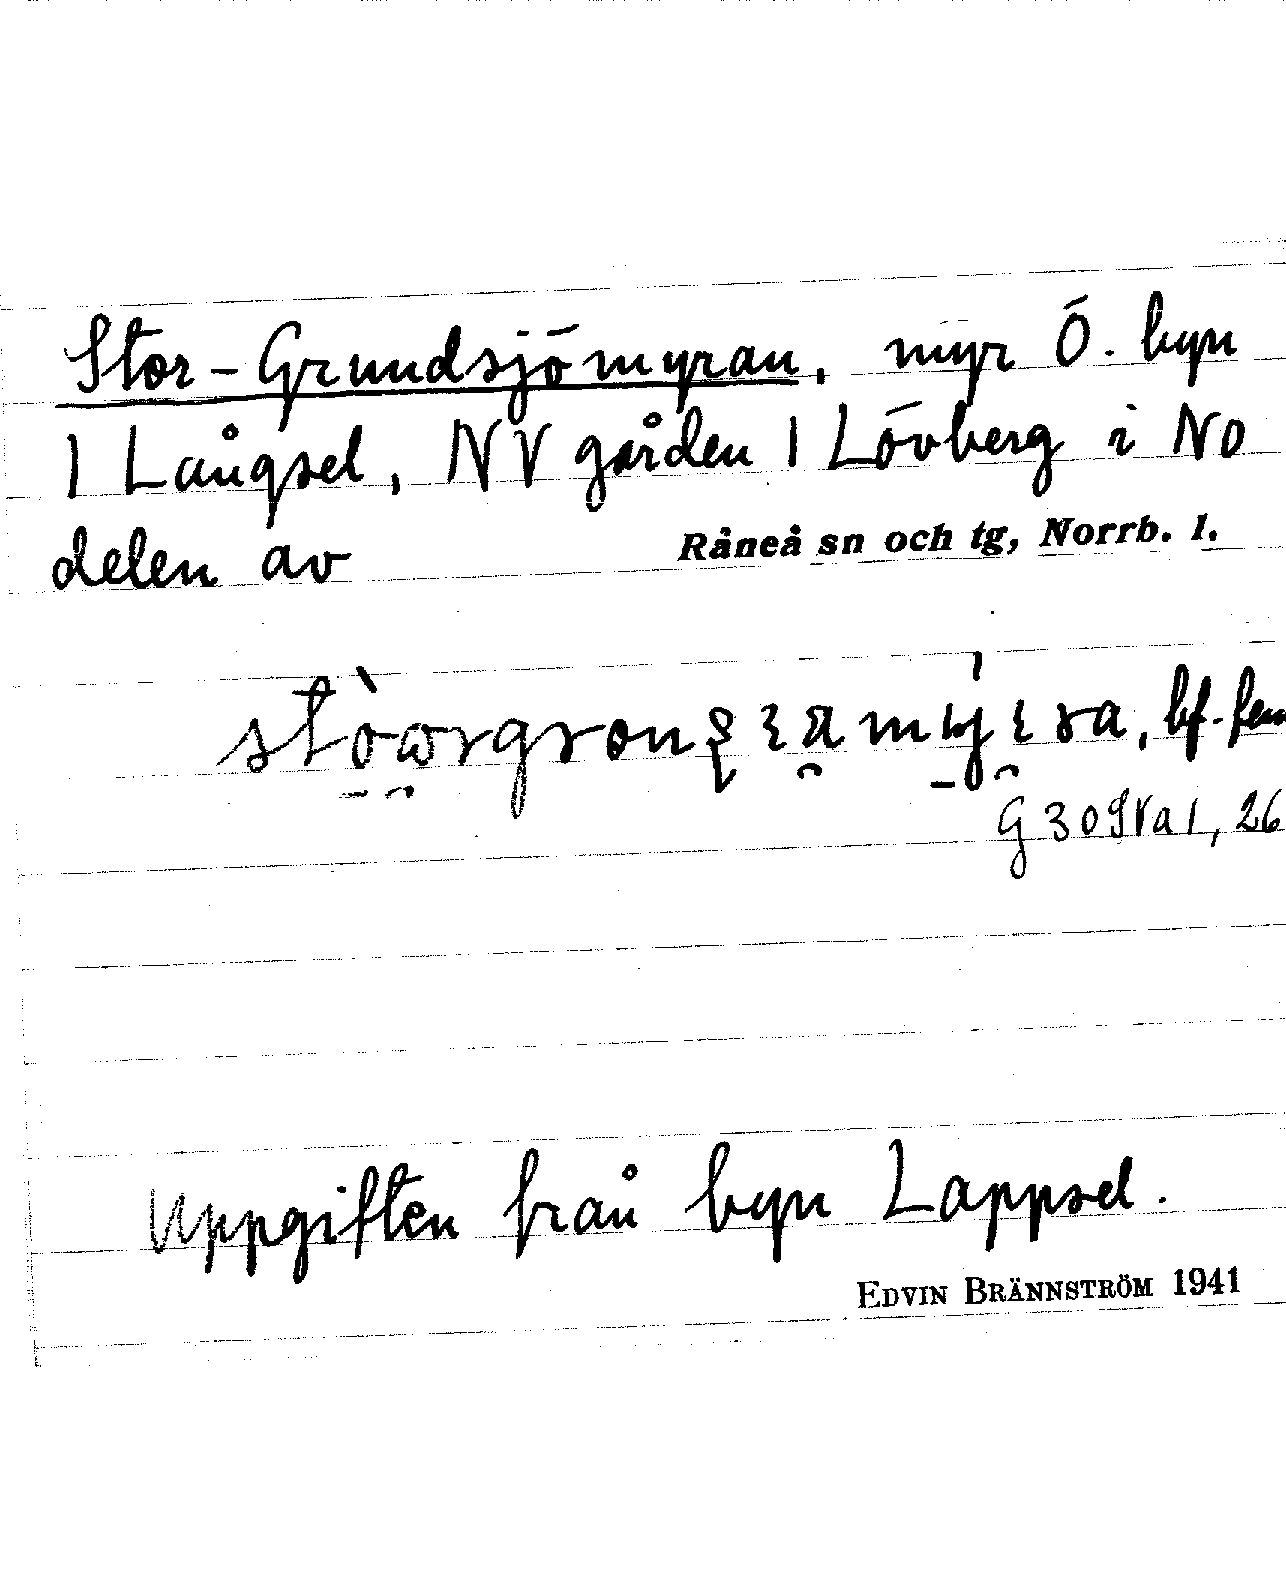 Stor-Grundsjömyran, myr Ö. byn
1 Långsel, NV gården 1 Lövberg i NO
delen av Råneå sn och tg, Norrb. l.
bf. fem
G 309Va1, 26
Uppgiften från byn Lappsel.
EDVIN BRÄNNSTRÖM 1941